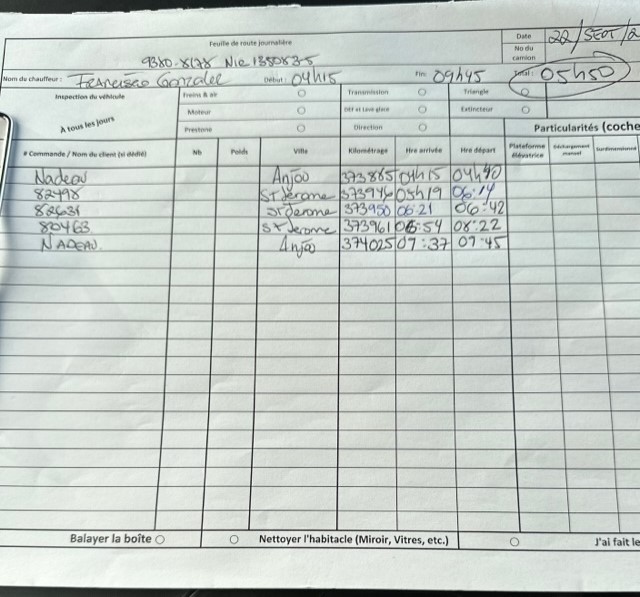 Feuille de route journalière
Date 22/SEPT/2
9380-8178 Nie 1350835
No du camion
Nom du chauffeur : Francisco Gonzalez Début: 04h15 Fin: 09h45 Total: 05h50
Inspection du véhicule Freins & air Transmission Triangle
Moteur Def et Lave glace Extincteur
À tous les jours Prestone Direction Particularités (coche
# Commande / Nom du client (si dédié) Nb Poids Ville Kilométrage Hre arrivée Hre départ Plateforme élévatrice Déchargement manuel Surdimensionné
Nadeau Anjou 373885 04h15 04h40
82498 St Jerome 373946 05h19 06:14
82631 St Jerome 373950 06:21 06:42
80463 St Jerome 373961 06:54 08:22
NADEAU Anjou 374025 07:37 07:45
Balayer la boîte Nettoyer l'habitacle (Miroir, Vitres, etc.) J'ai fait le